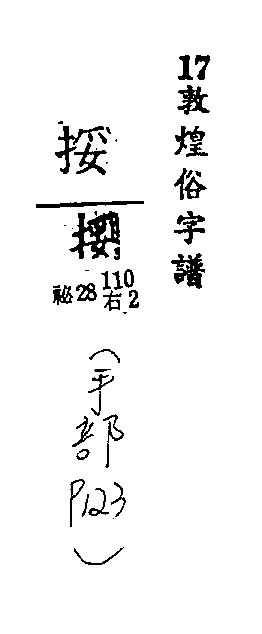 17敦煌俗字譜
挼
祕28 110右2
(手部P123)